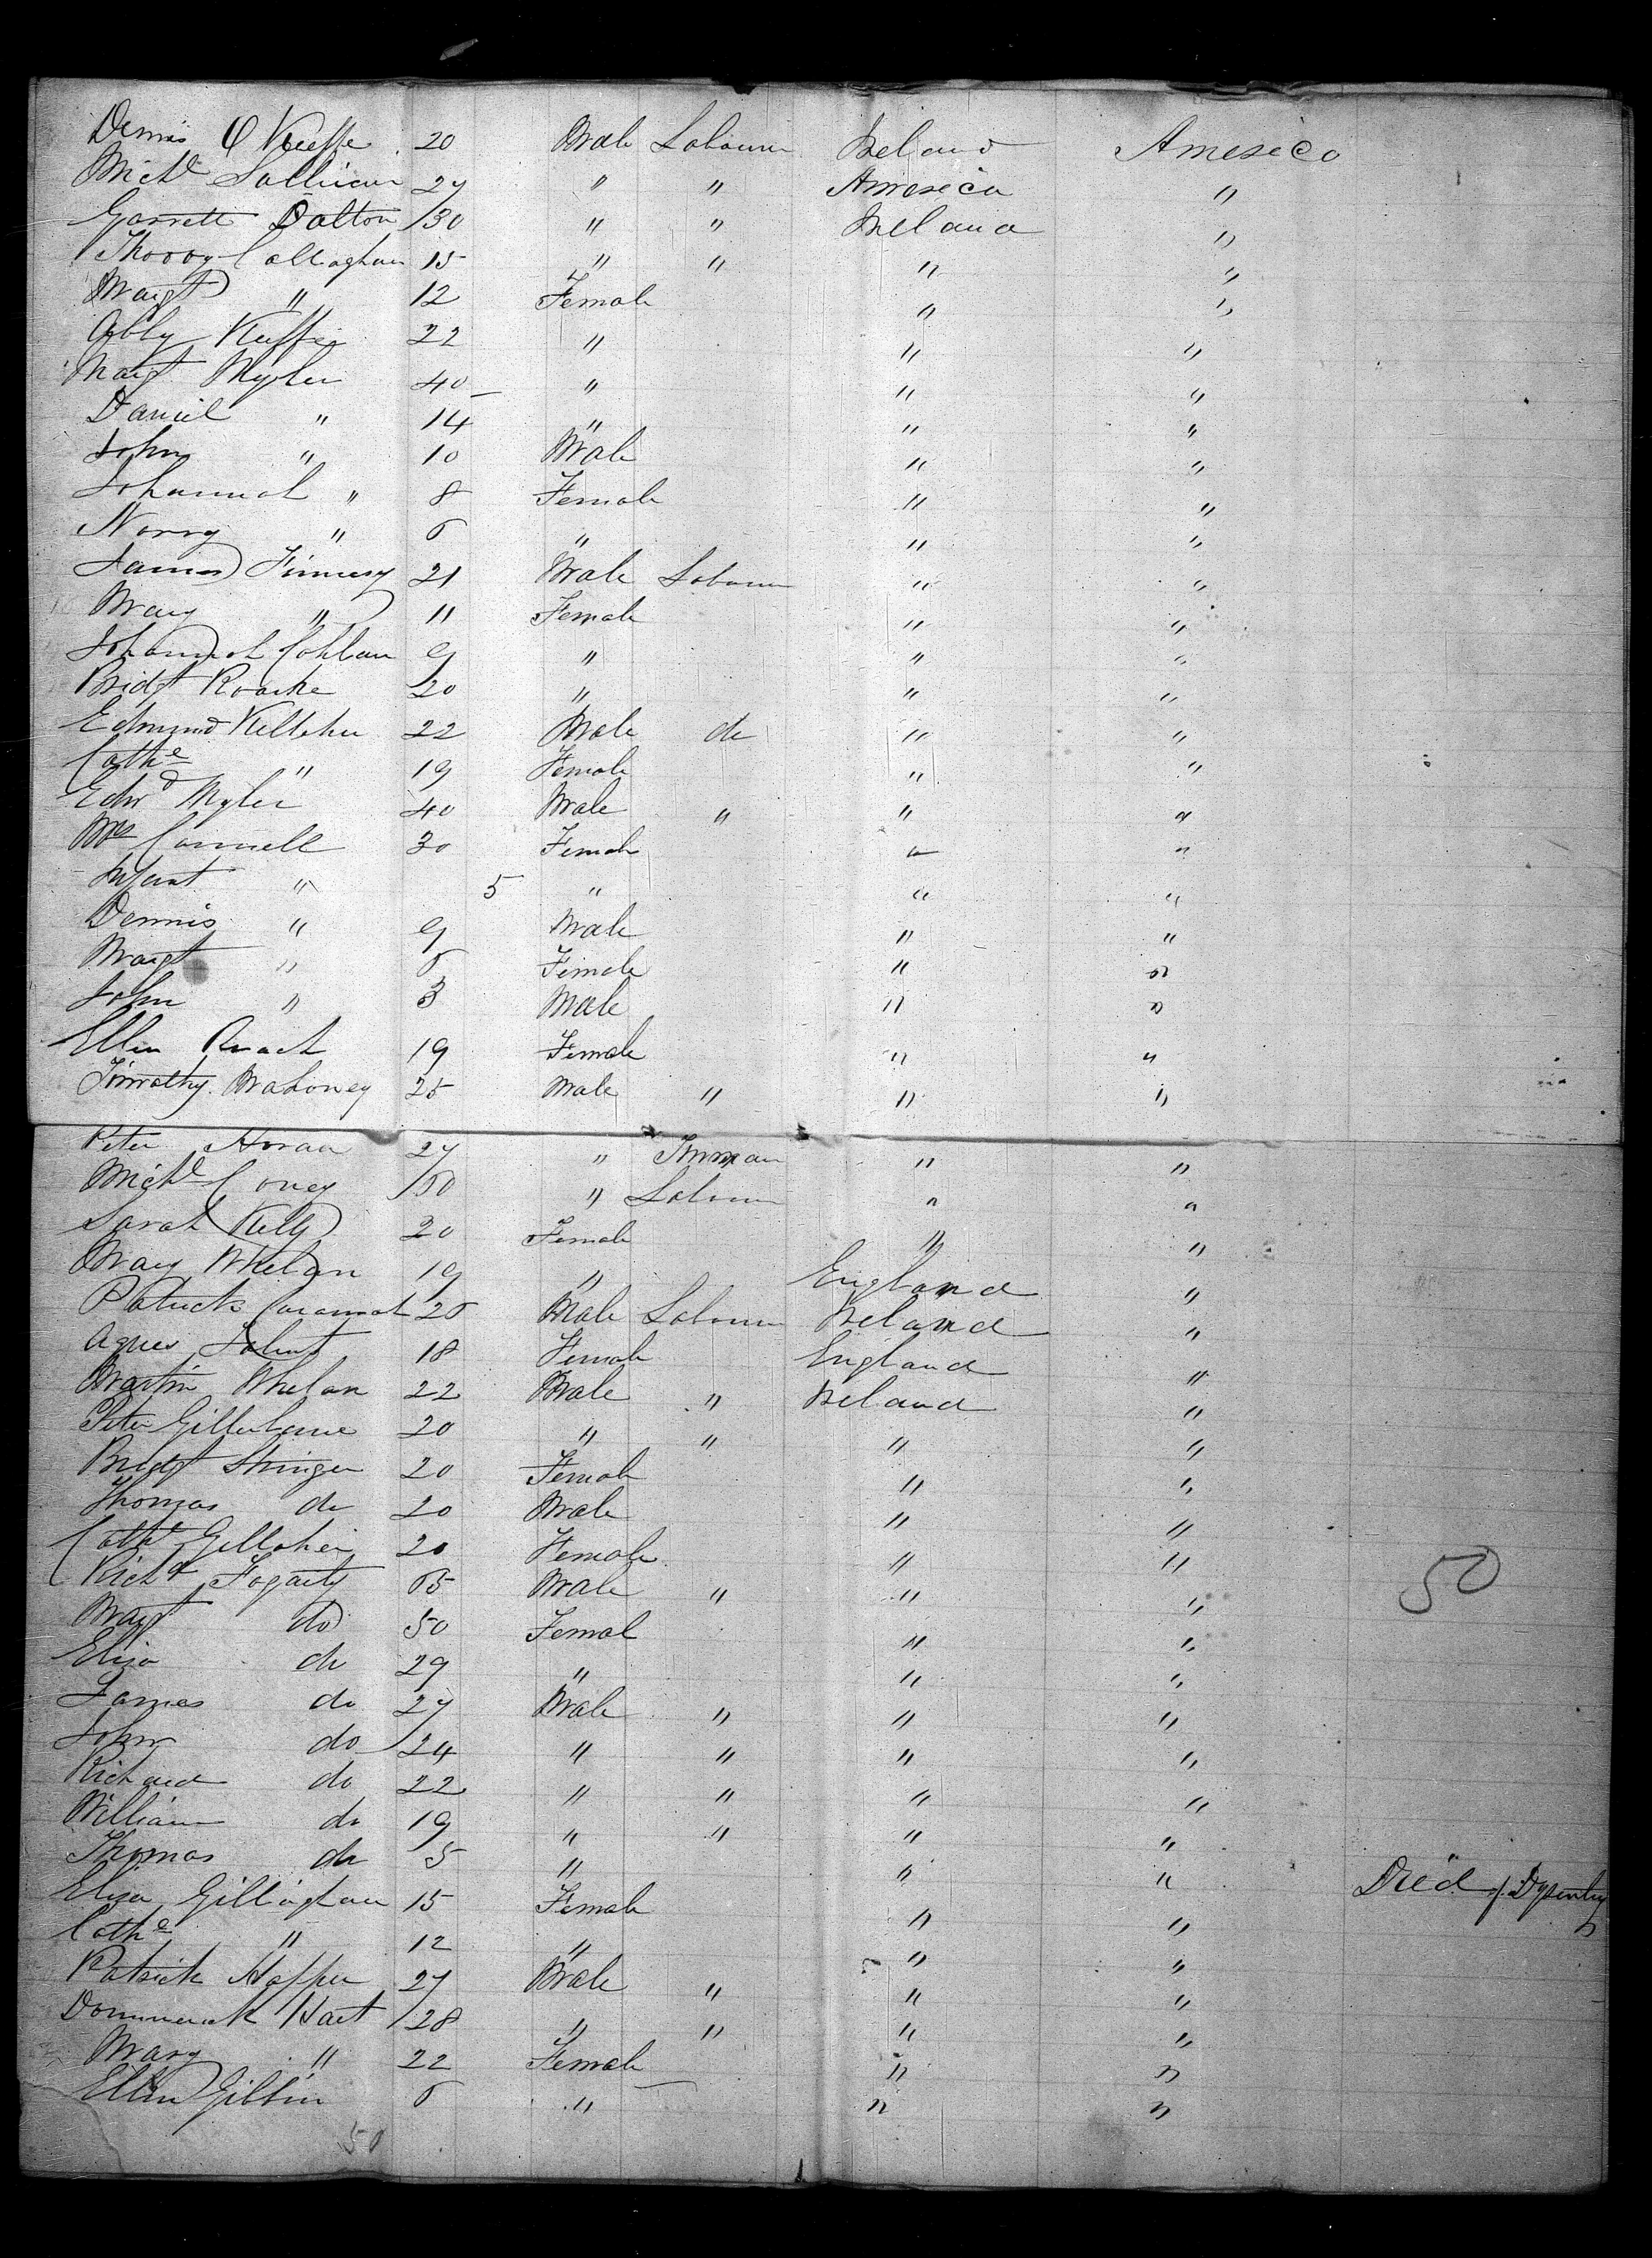 Dennis O Keeffe 20 Male Labourer Ireland America
Michl Sullivan 27 " " America "
Garrett Dalton 30 " " Ireland "
Callaghan 15 " " " "
Margt " 12 Female " "
Abby Keeffe 22 " " "
Margt Myler 40 " " "
Daniel " 14 " " "
John " 10 Male " "
Johannah " 8 Female " "
Norry " 6 " " "
James Finnesy 21 Male Labourer " "
Mary " 11 Female " "
Johannah Cohlan 9 " " "
Bridgt Roache 20 " " "
Edmund Kelleher 22 Male do " "
Cathe " 19 Female " "
Edwd Myler 40 Male " " "
Mrs Connell 30 Female " "
Infant " 5 " " "
Dennis " 9 Male " "
Margt " 6 Female " "
John " 3 Male " "
Ellen Roach 19 Female " "
Timothy Mahoney 25 Male " " "
Peter Horan 27 " " "
Michl Coney 50 " Labourer " "
Sarah Kelly 20 Female " "
Mary Whelan 19 " England "
Patrick 26 Male Labourer Ireland "
Agnes 18 Female England "
Martin Whelan 22 Male " Ireland "
Peter 20 " " " "
Bridgt Stringer 20 Female " "
Thomas do 20 Male " "
Cathe Gellaher 20 Female " "
Richd Fogarty 65 Male " " " 50
Margt do 50 Female " "
Eliza do 29 " " "
James do 27 Male " " "
John do 24 " " " "
Richard do 22 " " " "
William do 19 " " " "
Thomas do 5 " " " Died of Dysentery
Eliza Gillaghan 15 Female " "
Cathe " 12 " " "
Patrick 27 Male " " "
Dominick Hart 28 " " " "
Mary " 22 Female " "
Ellen Giblin 6 " " "
50